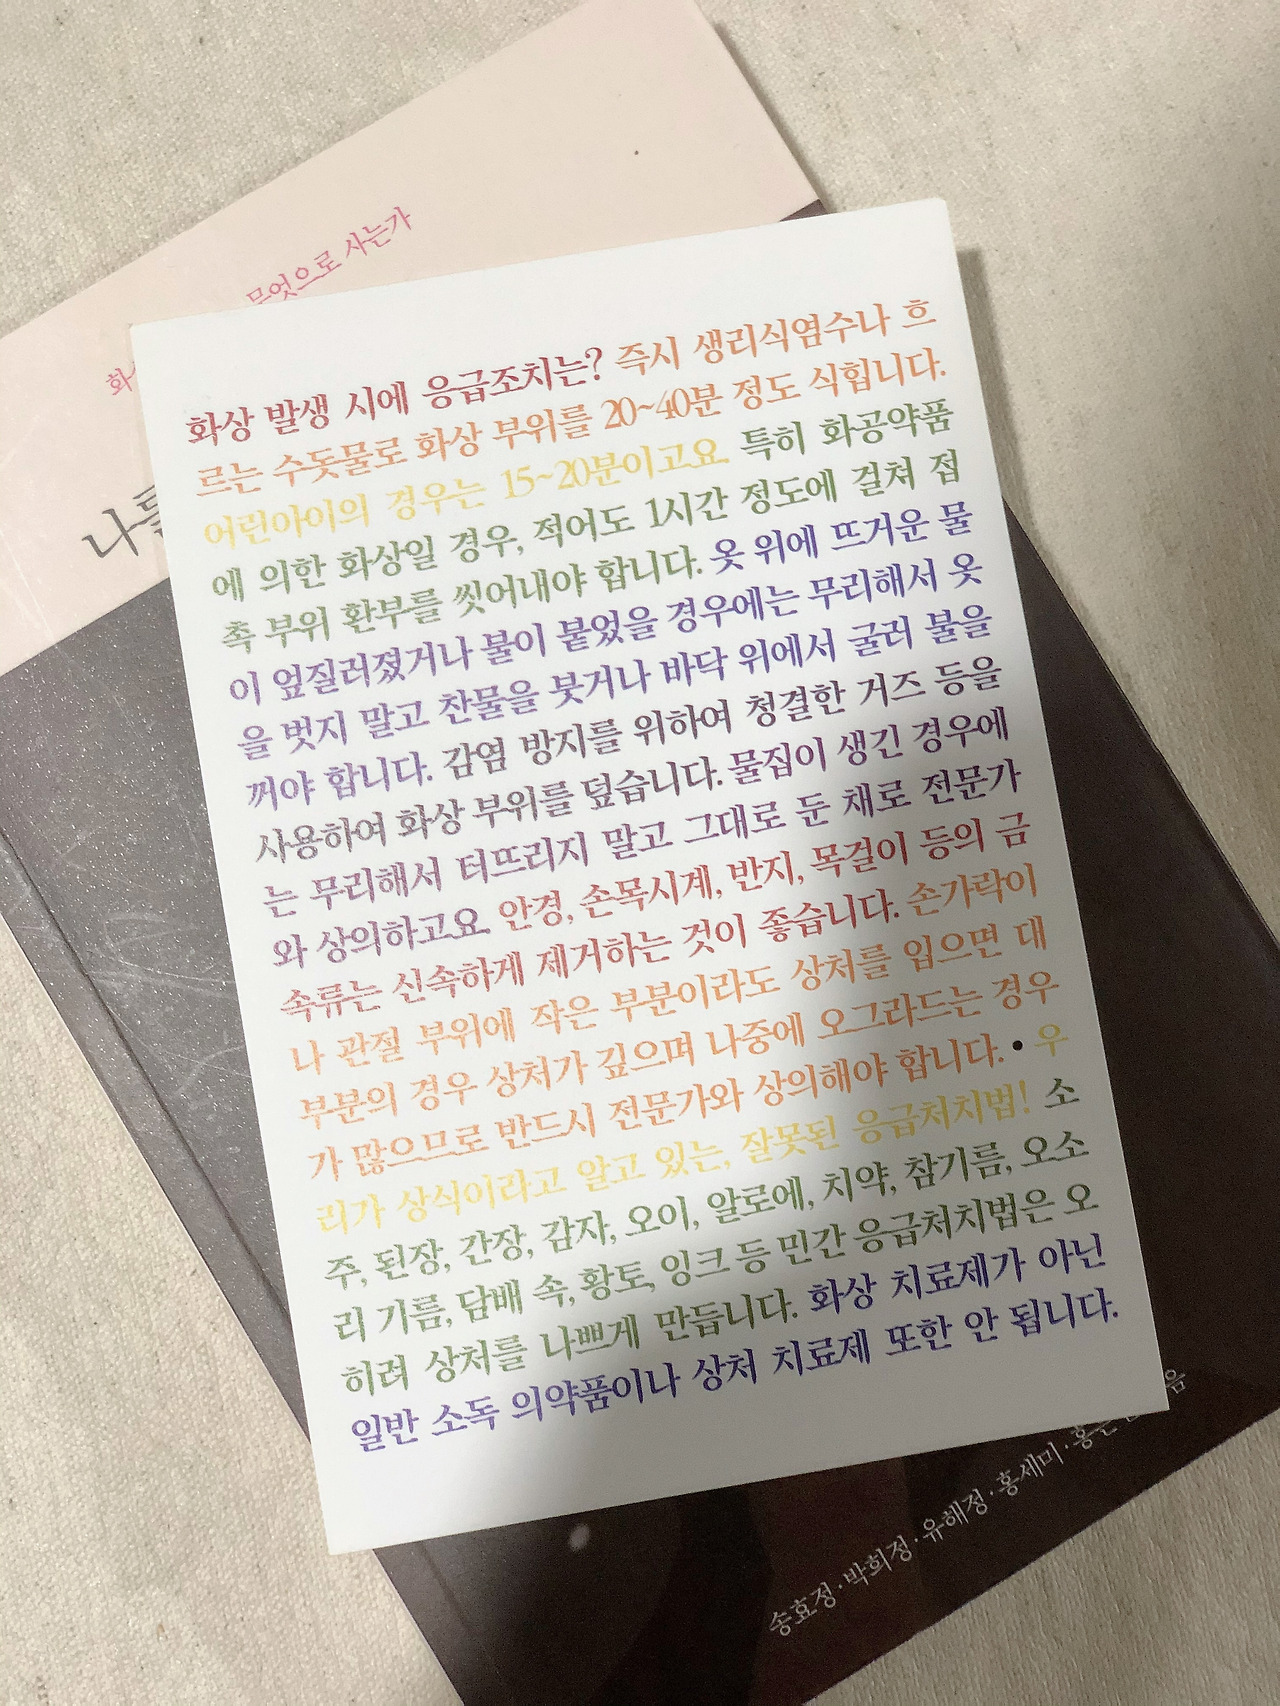 무엇으로 사는가
화상 발생 시에 응급조치는? 즉시 생리식염수나 흐
르는 수돗물로 화상 부위를 20~40분 정도 식힙니다.
어린아이의 경우는 15~20분이고요. 특히 화공약품
에 의한 화상일 경우, 적어도 1시간 정도에 걸쳐 접
촉 부위 환부를 씻어내야 합니다. 옷 위에 뜨거운 물
이 엎질러졌거나 불이 붙었을 경우에는 무리해서 옷
을 벗지 말고 찬물을 붓거나 바닥 위에서 굴러 불을
꺼야 합니다. 감염 방지를 위하여 청결한 거즈 등을
사용하여 화상 부위를 덮습니다. 물집이 생긴 경우에
는 무리해서 터뜨리지 말고 그대로 둔 채로 전문가
와 상의하고요. 안경, 손목시계, 반지, 목걸이 등의 금
속류는 신속하게 제거하는 것이 좋습니다. 손가락이
나 관절 부위에 작은 부분이라도 상처를 입으면 대
부분의 경우 상처가 깊으며 나중에 오그라드는 경우
가 많으므로 반드시 전문가와 상의해야 합니다. • 우
리가 상식이라고 알고 있는, 잘못된 응급처치법! 소
주, 된장, 간장, 감자, 오이, 알로에, 치약, 참기름, 오소
리 기름, 담배 속, 황토, 잉크 등 민간 응급처치법은 오
히려 상처를 나쁘게 만듭니다. 화상 치료제가 아닌
일반 소독 의약품이나 상처 치료제 또한 안 됩니다.
송효정·박희정·유해정·홍세미·홍은